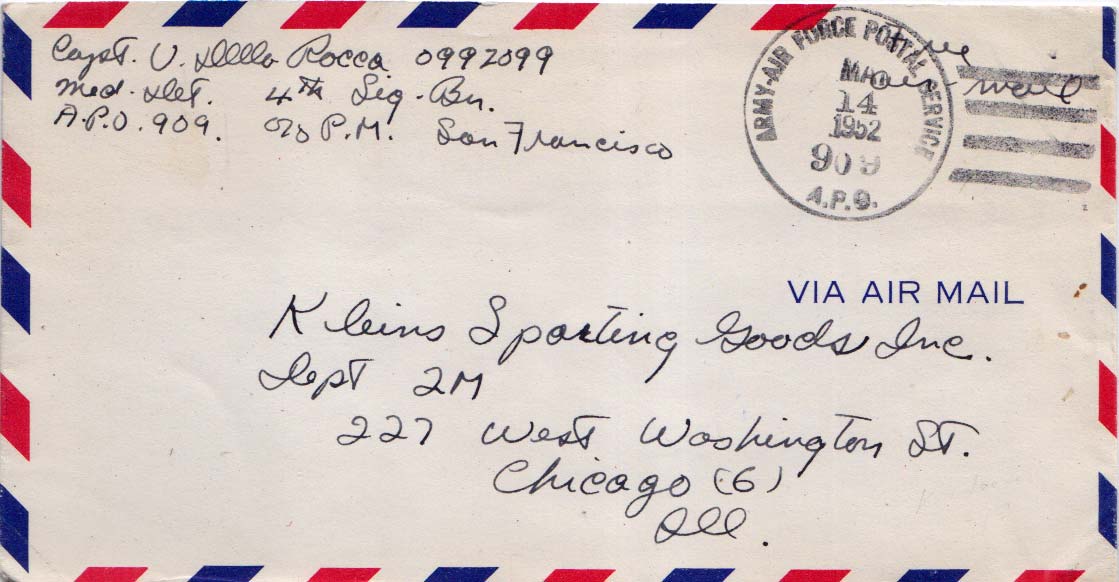 Capt. V. Della Rocca 0992099
Med. Det. 4th Sig. Bn.
A.P.O. 909. c/o P.M. San Francisco
Free
air mail
ARMY-AIR FORCE POSTAL SERVICE
14
1952
909
A.P.O.
VIA AIR MAIL
Kleins Sporting Goods Inc.
Dept 2M
227 West Washington St.
Chicago (6)
Ill.